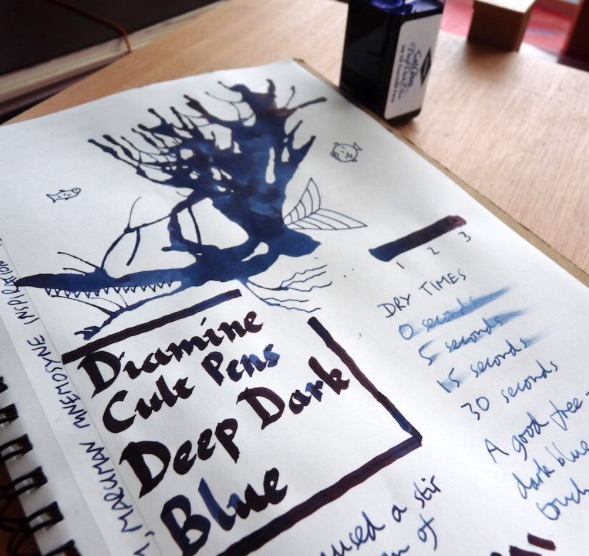 Diamine
Cult Pens
Deep Dark
Blue
MARUMAN MNEMOSYNE INSPIRATION
1 2 3
DRY TIMES
0 seconds
5 seconds
15 seconds
30 seconds
A good free-
dark blue
used a stir
of